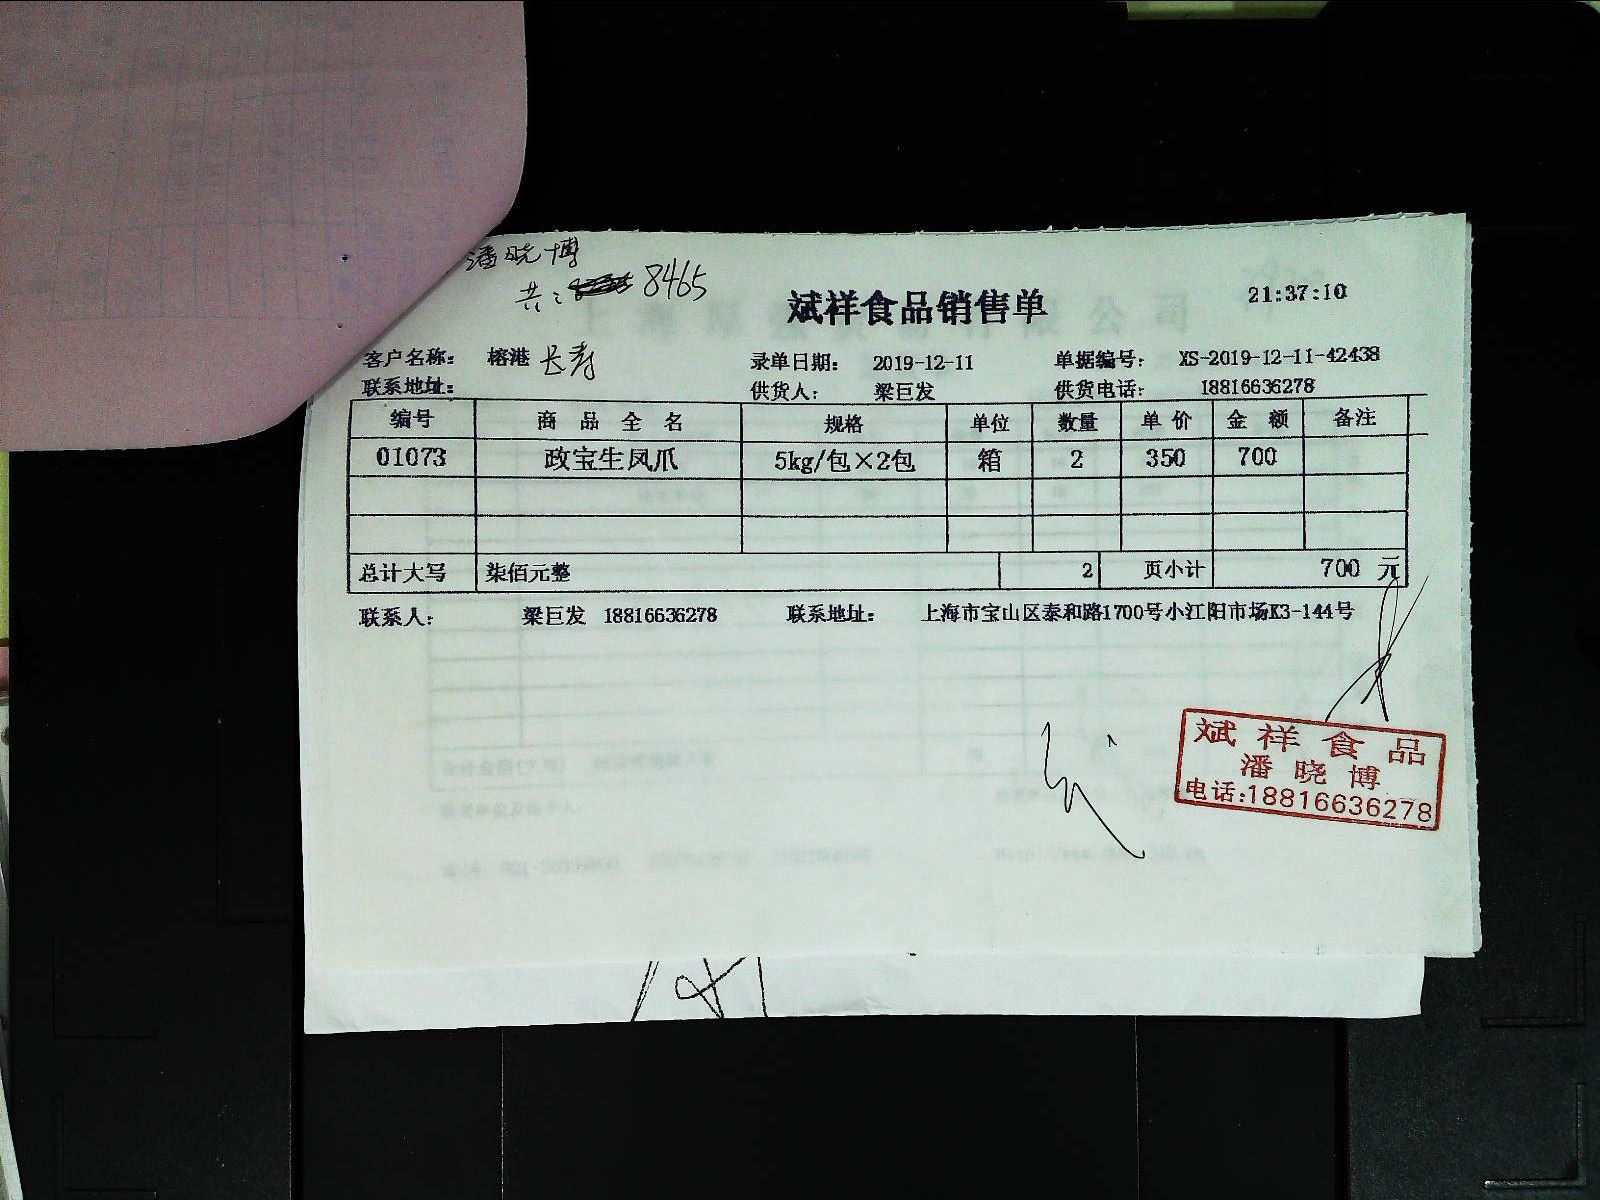 潘晓博
共: 8465
斌祥食品销售单
21:37:10
客户名称: 榕港 长寿 录单日期: 2019-12-11 单据编号: XS-2019-12-11-42438
联系地址: 供货人: 梁巨发 供货电话: 18816636278
编号 商品全名 规格 单位 数量 单价 金额 备注
01073 政宝生凤爪 5kg/包×2包 箱 2 350 700
总计大写 柒佰元整 2 页小计 700 元
联系人: 梁巨发 18816636278 联系地址: 上海市宝山区泰和路1700号小江阳市场K3-144号
斌祥食品
潘晓博
电话:18816636278